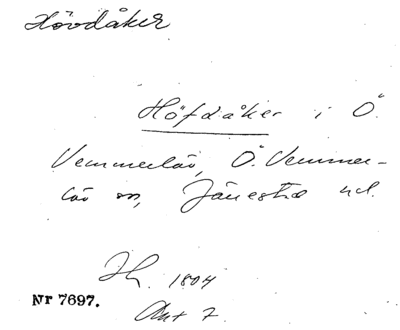 Hövdåker
Höfdåker i Ö.
Vemmerlöv, Ö. Vemmer-
löv sn, Järrestad hd.
1804
Nr 7697.
Akt 7